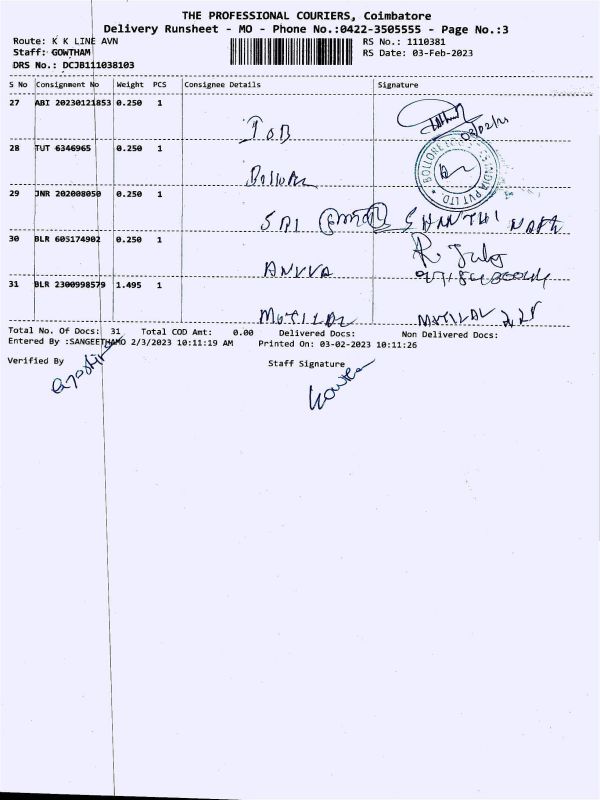 THE PROFESSIONAL COURIERS, Coimbatore
Delivery Runsheet - MO - Phone No.:0422-3505555 - Page No.:3
Route: K K LINE AVN RS No.: 1110381
Staff: GOWTHAM RS Date: 03-Feb-2023
DRS No.: DCJB111038103
S No Consignment No Weight PCS Consignee Details Signature
27 ABI 20230121853 0.250 1
IOB
28 TUT 6346965 0.250 1
BOLLORE INDIA PVT LTD.
29 JNR 202008050 0.250 1
SRI SHANTHI
30 BLR 605174902 0.250 1
31 BLR 2300998579 1.495 1
MOTILAL MOTILAL
Total No. Of Docs: 31 Total COD Amt: 0.00 Delivered Docs: Non Delivered Docs:
Entered By :SANGEETHAMO 2/3/2023 10:11:19 AM Printed On: 03-02-2023 10:11:26
Verified By Staff Signature